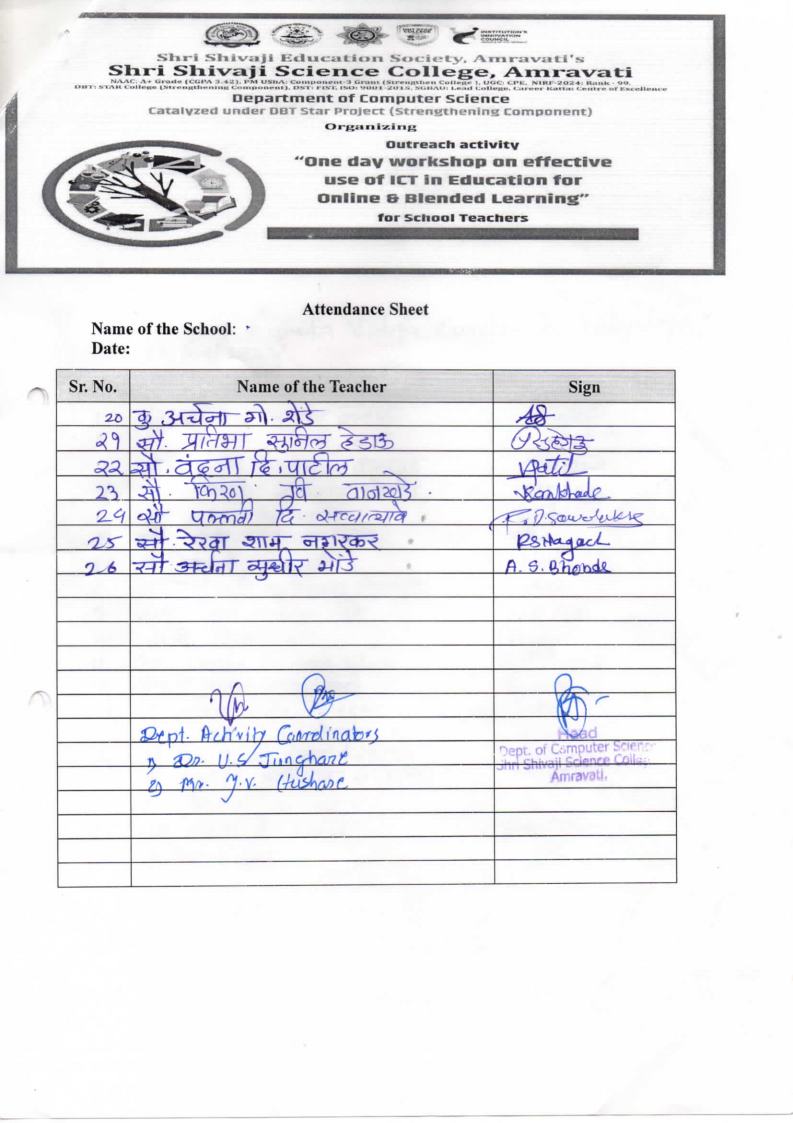 INSTITUTION'S INNOVATION COUNCIL
Shri Shivaji Education Society, Amravati's
Shri Shivaji Science College, Amravati
NAAC: A+ Grade (CGPA 3.42), PM USHA: Component-3 Grant (Strengthen College ), UGC: CPE, NIRF-2024: Rank - 99,
DBT: STAR College (Strengthening Component), DST: FIST, ISO: 9001-2015, SGBAU: Lead College, Career Katta: Centre of Excellence
Department of Computer Science
Catalyzed under DBT Star Project (Strengthening Component)
Organizing
Outreach activity
"One day workshop on effective
use of ICT in Education for
Online & Blended Learning"
for School Teachers
Attendance Sheet
Name of the School:
Date:
Sr. No. Name of the Teacher Sign
20 कु अर्चना गो. शेंडे
२१ सौ. प्रतिभा सुनिल हेडाऊ
२२ सौ. वंदना दि. पाटील Vpatil
23 सौ. किरण रवि वानखडे. Rwankhade
२४ सौ पल्लवी दि.
25 सौ. रेखा शाम नगरकर
26 सौ अर्चना सुधीर भोंडे A. S. Bhonde
Dept. Activity Coordinators
1) Dr. U.S. Junghare
2) Mr. Y.V.
Head
Dept. of Computer Science
Shri Shivaji Science College
Amravati.